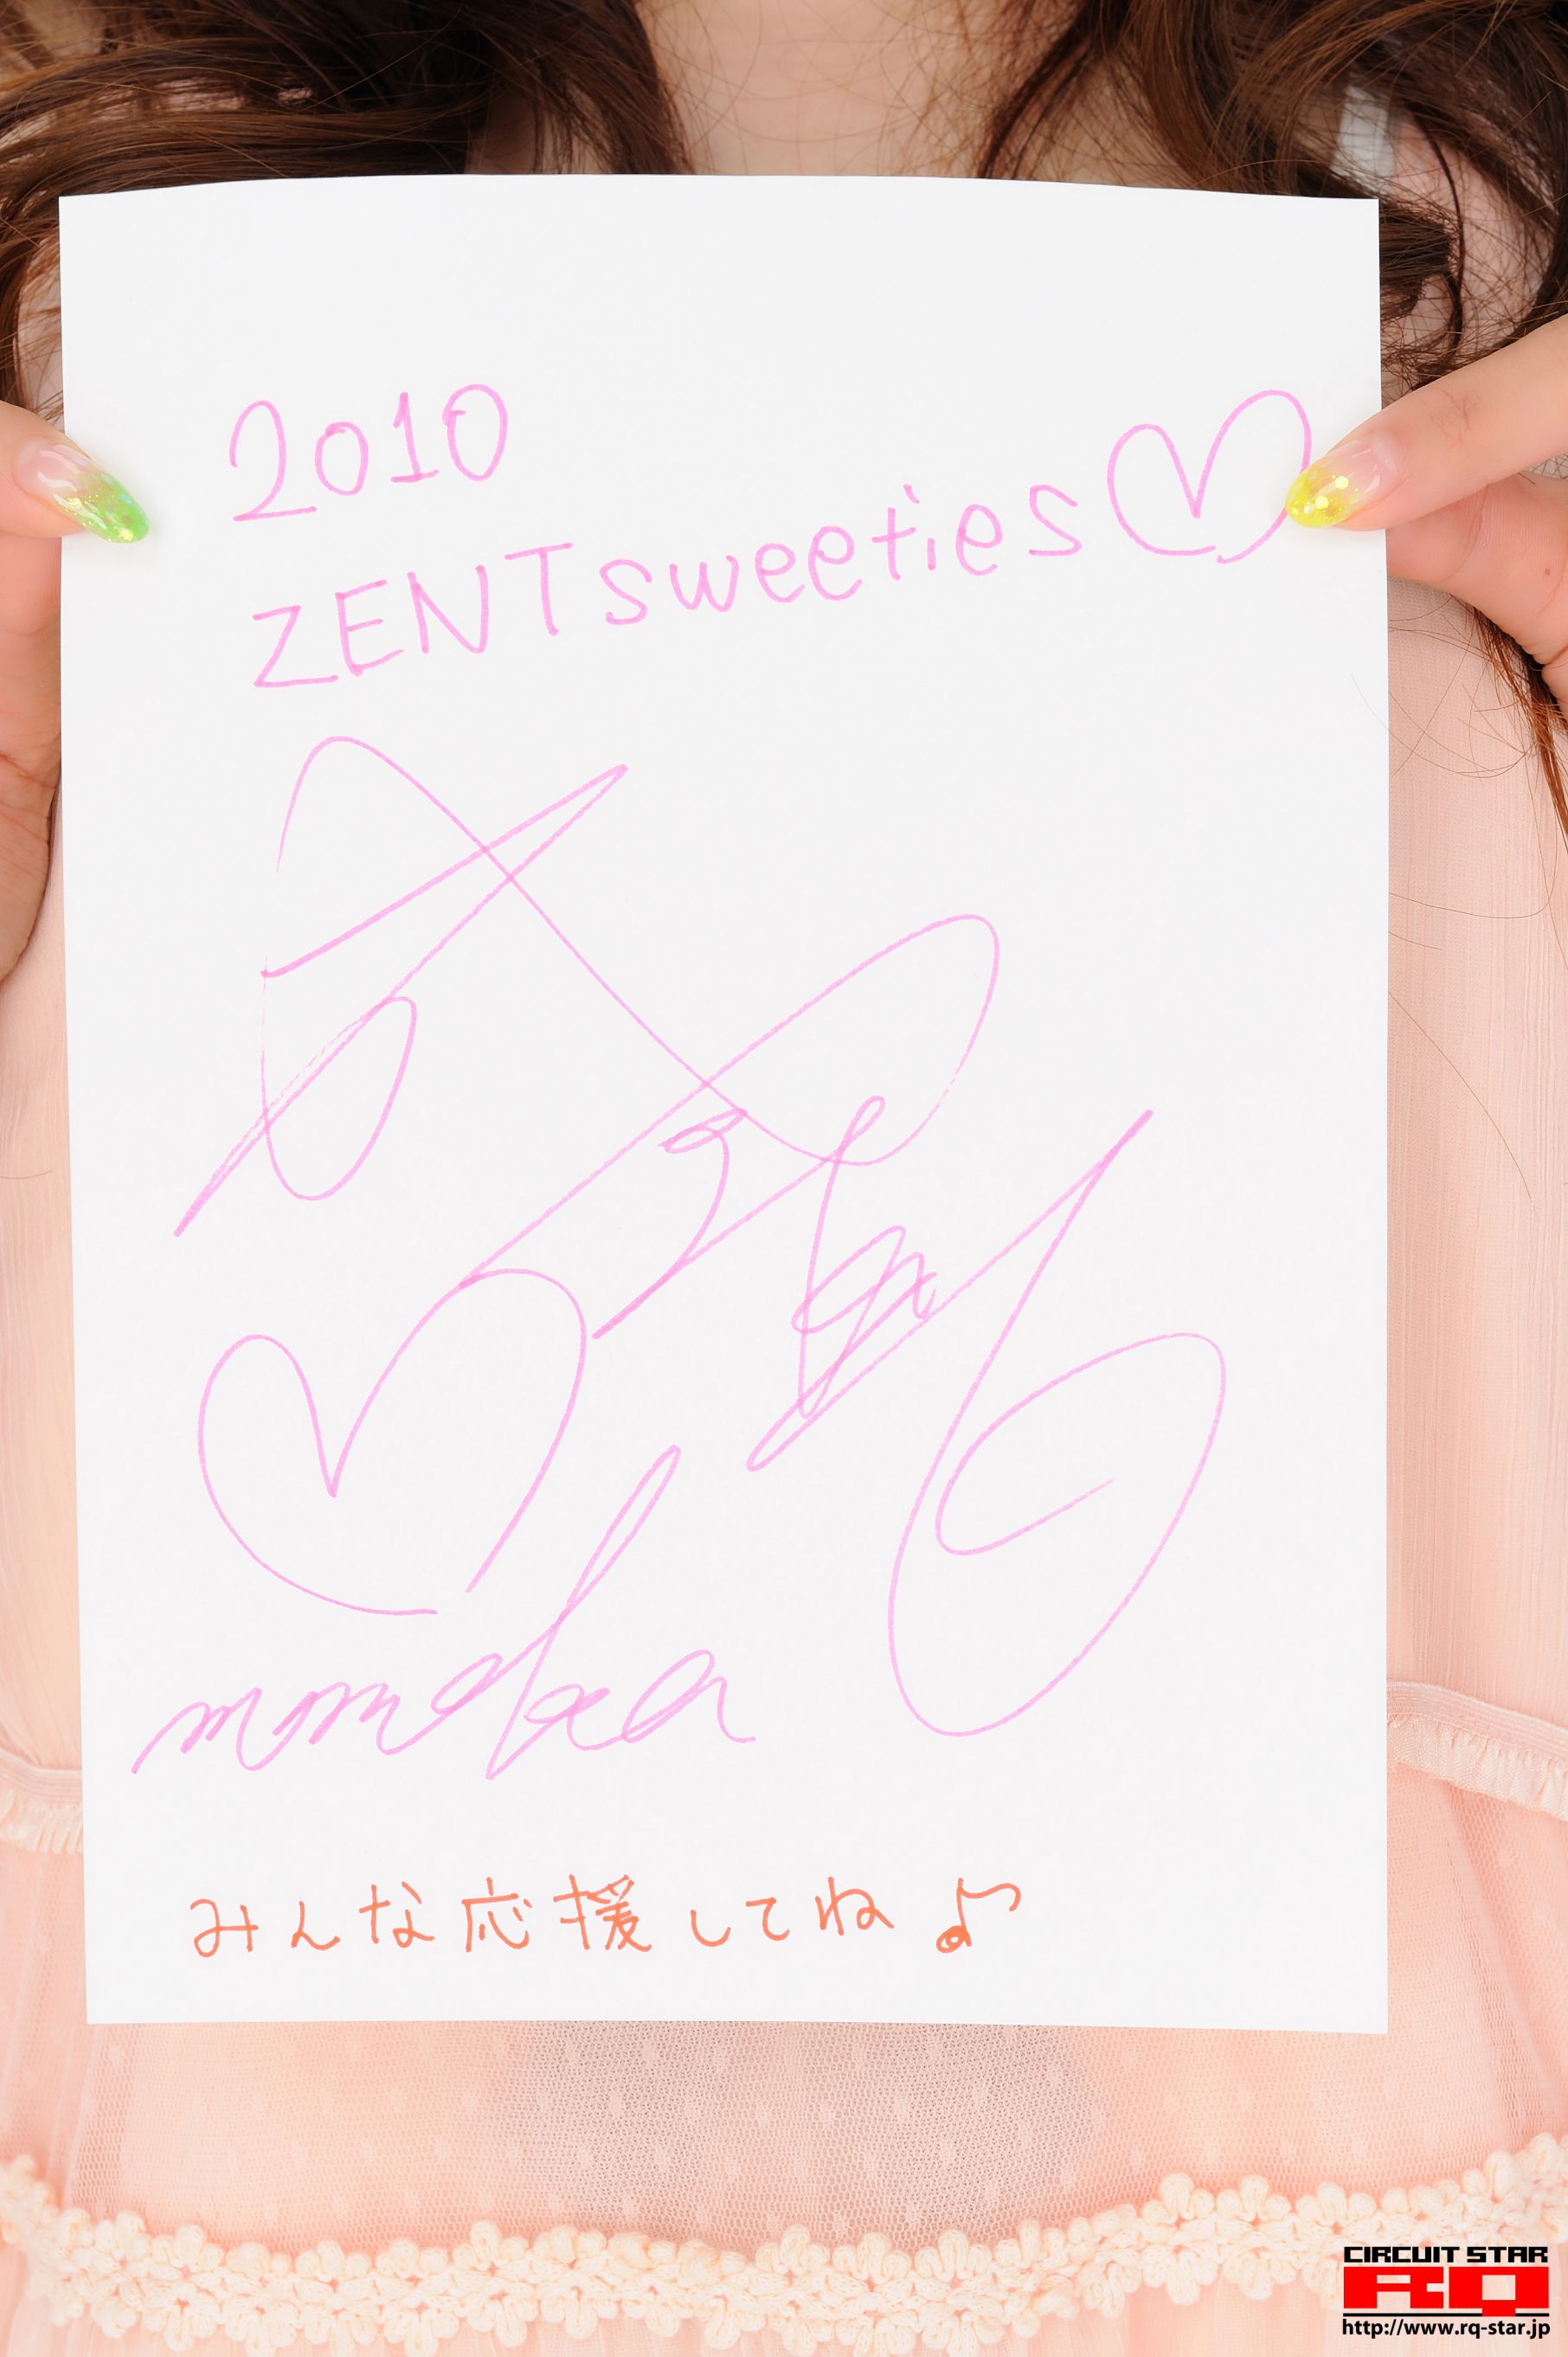 2010
ZENT sweeties♡
momoka
みんな応援してね♪
CIRCUIT STAR
RQ
http://www.rq-star.jp